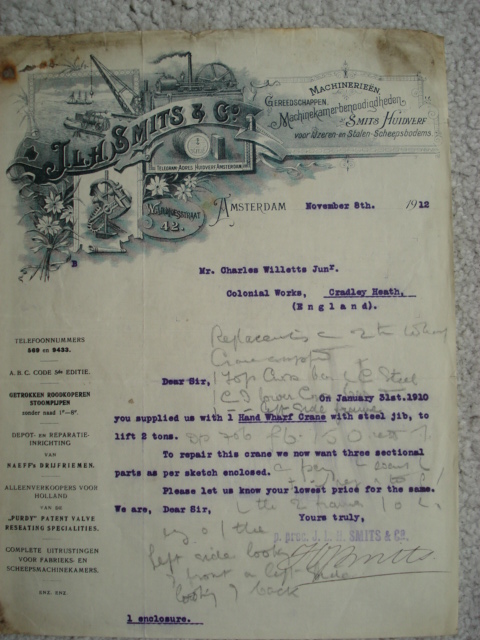 J.L.H. SMITS & Co.
TELEGRAM-ADRES HUIDVERF AMSTERDAM
42.
MACHINERIEËN,
GEREEDSCHAPPEN,
Machinekamerbenoodigdheden
SMITS HUIDVERF
voor IJzeren- en Stalen-Scheepsbodems
AMSTERDAM November 8th. 1912
Mr. Charles Willetts Junr.
Colonial Works, Cradley Heath,
(England).
TELEFOONNUMMERS
569 en 9453.
A.B.C. CODE 5de EDITIE.
GETROKKEN ROODKOPEREN
STOOMPIJPEN
zonder naad 1"—8".
DEPOT- en REPARATIE-
INRICHTING
VAN
NAEFF's DRIJFRIEMEN.
ALLEENVERKOOPERS VOOR
HOLLAND
VAN DE
„PURDY" PATENT VALVE
RESEATING SPECIALITIES.
COMPLETE UITRUSTINGEN
VOOR FABRIEKS- EN
SCHEEPSMACHINEKAMERS.
ENZ. ENZ.
Dear Sir,
On January 31st.1910
you supplied us with 1 Hand Wharf Crane with steel jib, to
lift 2 tons.
To repair this crane we now want three sectional
parts as per sketch enclosed.
Please let us know your lowest price for the same.
We are, Dear Sir,
Yours truly,
p. proc. J. L. H. SMITS & Co.
Left side
front
back
1 enclosure.